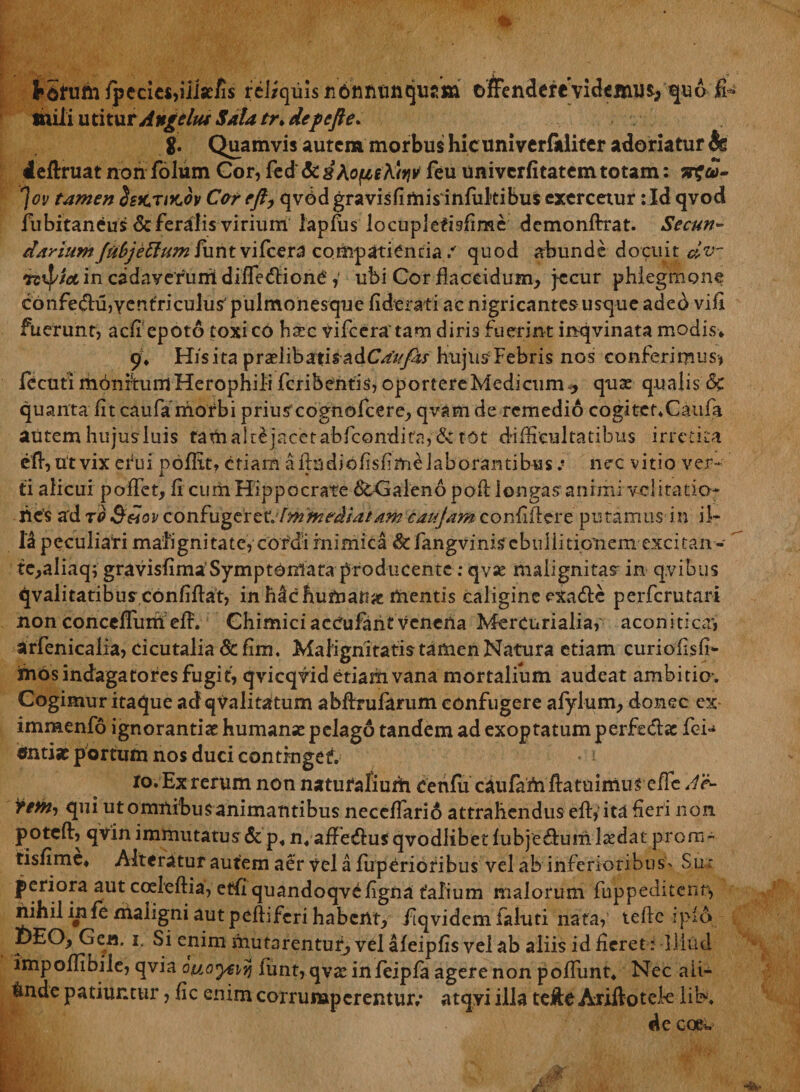 horum species,illæsis reliquis nonnunquam offendere videmus, quô si-
mili utitur Angelus Sala tr. de peste.
8. Quamvis autem morbus hic universaliter adoriatur &
destruat non solum Cor, sed & seu universitatem totam:
tamen δεκτικὸν Cor est, qvòd gravissimis insultibus exercetur : Id qvod
subitaneus & feralis virium lapsus locupletissimè demonstrat. Secun-
darium subjectum sunt viscera compatientia: quod abundè docuit ἀυ-
τοψία in cadaverum dissectione, ubi Cor flaccidum, jecur phlegmone
confectû, ventriculus pulmonesque siderati ac nigricantes usque adeò visi
fuerunt, acsi epotô toxicô hæc viscera tam diris fuerint inqvinata modis.
9. His ita prælibatis ad Causas hujus Febris nos conferimus,
secuti monitum Herophili scribentis, oportere Medicum, quæ qualis &
quanta sit causa morbi prius cognoscere, qvàm de remediô cogitet. Causa
autem hujus luis tam altè jacet abscondita, & tot difficultatibus irretita
est, ut vix erui possit, etiam à studiosissimè laborantibus: nec vitio ver-
ti alicui posset, si cum Hippocrate & Galenô post longas animi velitatio-
nes ad τὸ θεῖον confugeret. Immediatam causam consistere putamus in il-
lâ peculiari malignitate, cordi inimicâ & sangvinis ebullitionem excitan-
te, aliaq; gravissima Symptomata producente: qvæ malignitas in qvibus
qvalitatibus consistat, in hâc humanæ mentis caligine exactè perscrutari
non concessum est. Chimici accusant venena Mercurialia, aconitica,
arsenicalia, cicutalia & sim. Malignitatis tamen Natura etiam curiosissi-
mos indagatores fugit, qvicqvid etiam vana mortalium audeat ambitio.
Cogimur itaque ad qvalitatum abstrusarum confugere asylum, donec ex
immensô ignorantiæ humanæ pelagô tandem ad exoptatum perfectæ sci-
entiæ portum nos duci continget.
10. Ex rerum non naturalium censu causam statuimus esse Aë-
rem, qui ut omnibus animantibus necessariô attrahendus est, ita fieri non
potest, qvin immutatus & p. n. affectus qvodlibet subjectum lædat prom-
tissimè. Alteratur autem aër vel à superioribus vel ab inferioribus. Su-
periora aut cœlestia, etsi quandoqvè signa talium malorum suppeditent,
nihil in se maligni aut pestiferi habent, siqvidem saluti nata, teste ipsô
DEO, Gen. 1. Si enim mutarentur, vel à seipsis vel ab aliis id fieret: Illud
impossibile, qvia ὁμογενῆ sunt, qvæ in seipsa agere non possunt. Nec ali-
unde patiuntur, sic enim corrumperentur: atqvi illa teste Aristotele lib.
de cœ-